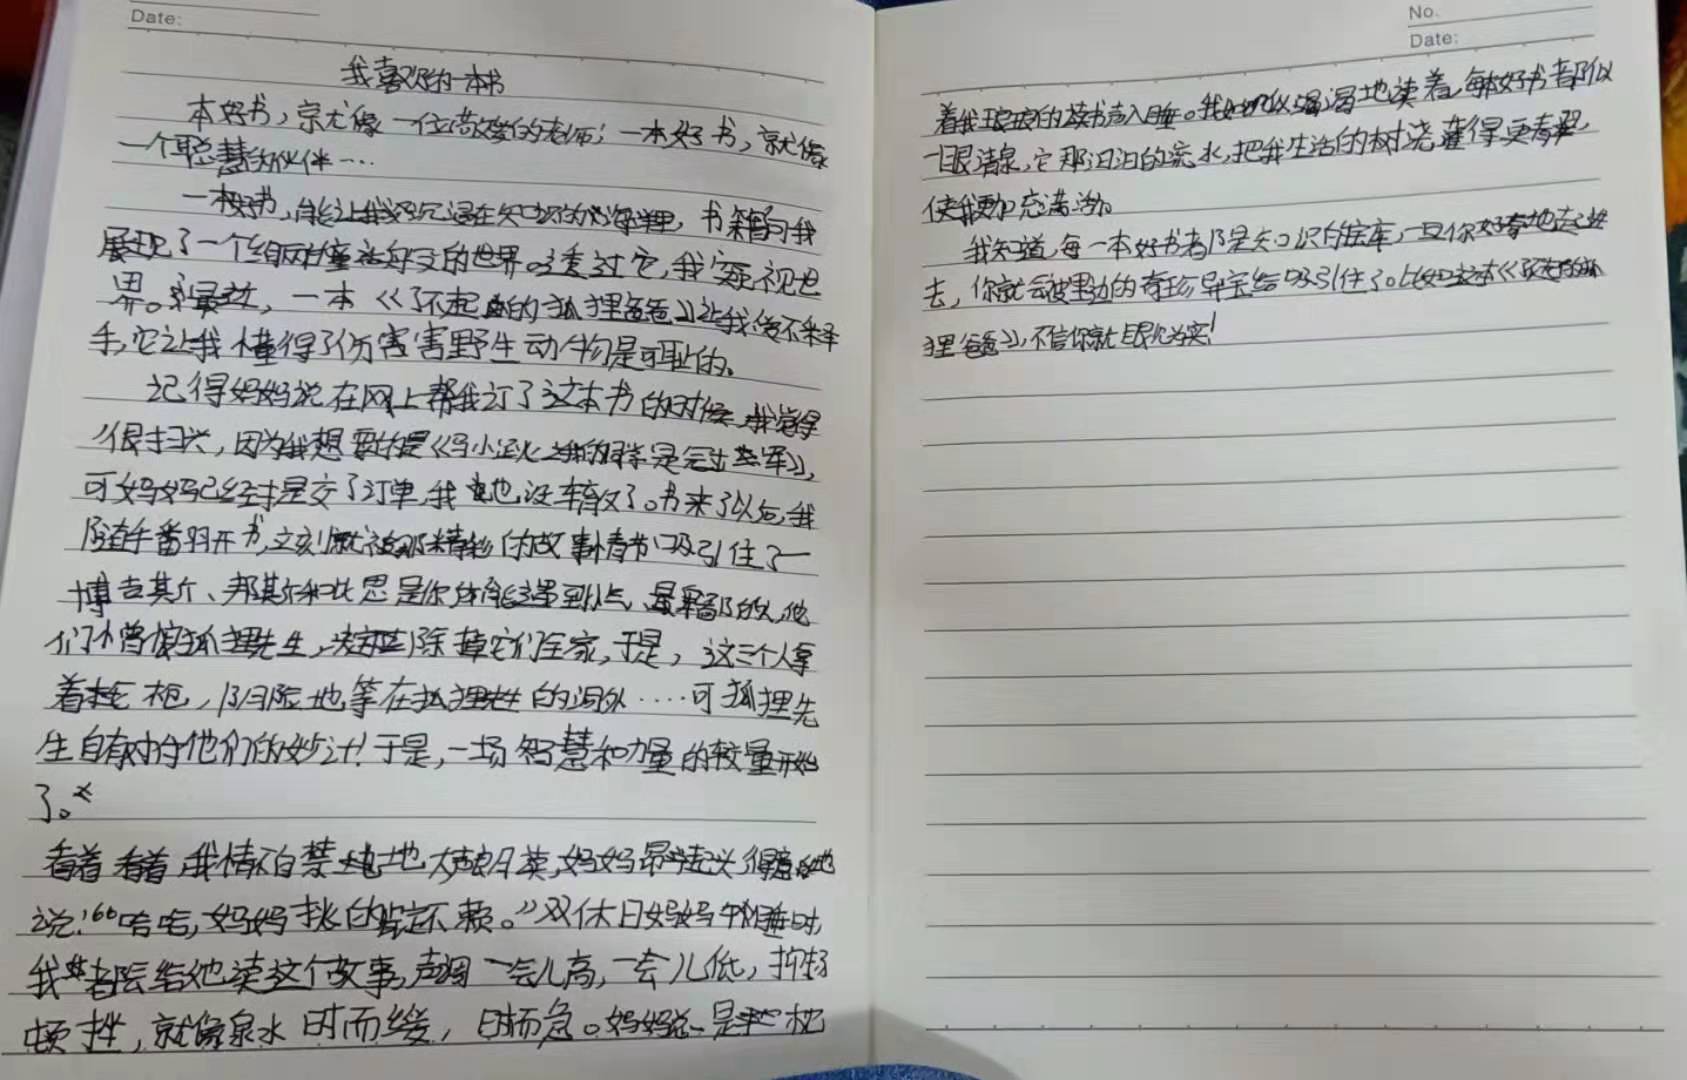 Date:
我喜欢的一本书
本好书，就像一位高尚的老师；一本好书，就像
一个聪慧的伙伴…
一本好书，能让我沉浸在知识的海洋里，书籍向我
展现了一个绚丽的童话的世界。透过它，我窥视世
界。最近，一本《了不起的狐狸爸爸》让我爱不释
手，它让我懂得了伤害害野生动物是可耻的。
记得妈妈说在网上帮我订了这本书的时候，我觉得
很扫兴，因为我想要的是《马小跳
可妈妈已经提交了订单，我也没辙了。书来了以后，我
随手翻开书，立刻就被那精彩的故事情节吸引住了—
博吉斯、邦斯和比恩是你能遇到的最卑鄙的人，他
们憎恨狐狸先生，决定除掉它们全家，于是，这三个人拿
着枪，阴险地等在狐狸先生的洞外……可狐狸先
生自有对付他们的妙计！于是，一场智慧和力量的较量开始
了。
看着看着，我情不自禁地大声朗读，妈妈昂起头得意地
说：“哈哈，妈妈挑的书还不赖。”双休日妈妈午睡时，
我都会给她读这个故事，声调一会儿高，一会儿低，抑扬
顿挫，就像泉水时而缓，时而急。妈妈说是枕
No.
Date:
着我琅琅的读书声入睡。我如饥似渴地读着，每本好书都似
一眼清泉，它那汩汩的流水，把我生活的树浇灌得更青翠，
使我更加充满活力。
我知道，每一本好书都是知识的宝库，一旦你好奇地走进
去，你就会被里边的奇珍异宝给吸引住了。比如这本《了不起的狐
狸爸爸》，不信你就眼见为实！